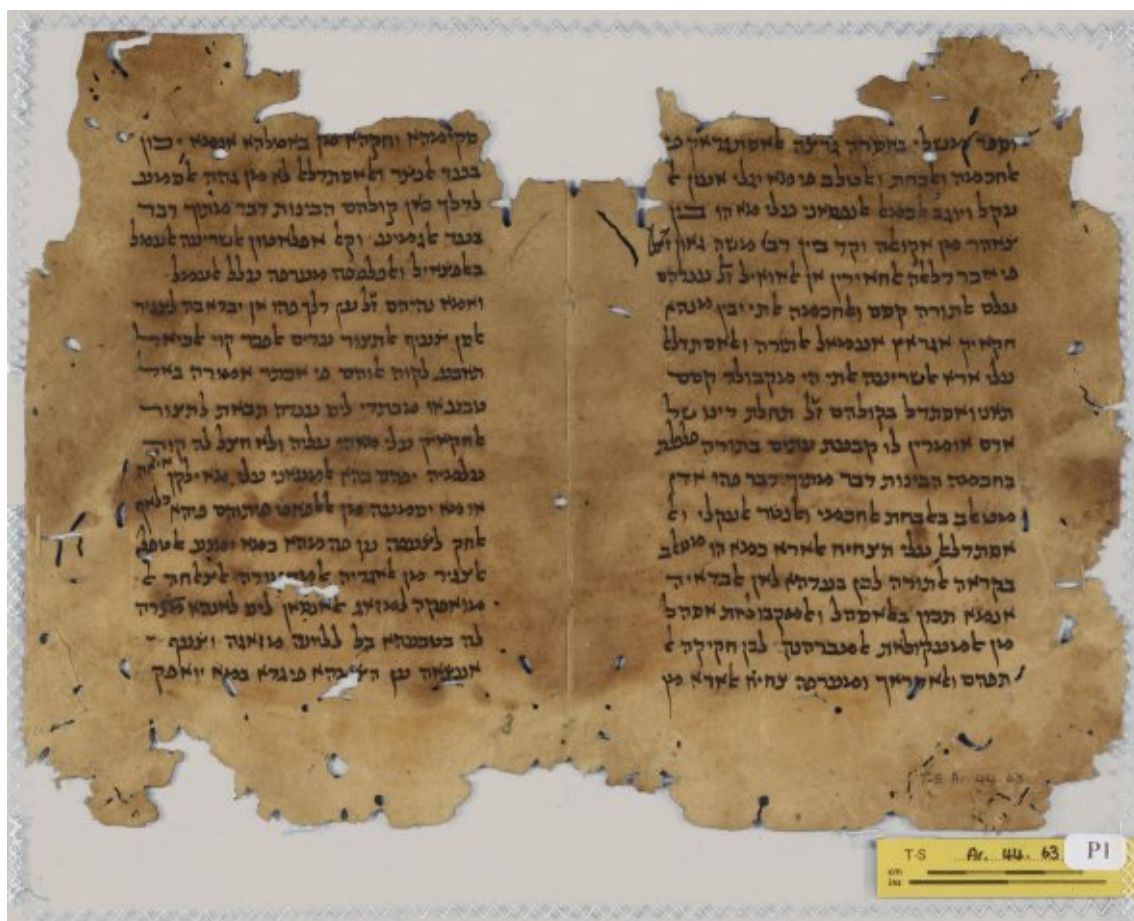 אלאסתגראק פי
אלחכמה ואלבחת ואלטלב פי מא יגלי
עקל ויוגב עלי מא הו בין
וקד בין משה גאון ז״ל
פי אכר דלאלה אלחאירין אן אלאואיל ז״ל ענדהם
עלם אלתורה קסם ואלחכמה אלתי יבין מנהא
חקאיק אגראץ אעמאל אלתורה ואלאסתדלאל
עלי ארא אלשריעה אלתי הי מקבולה קסם
תאני ואסתדל בקולהם ז״ל תחלת דינו של
אדם אומרין לו קבעת עתים בתורה פלפלת
בחכמה הבינות דבר מתוך דבר פהו אדן
מטאלב באלבחת אלחכמי ואלנטר אלעקלי ואל
אסתדלאל עלי תצחיח אלארא כמא הו מטאלב
בקראה אלתורה לכן בעדהא לאן אלבדאיה
אנמא תכון באלאסהל ואלמקבולאת אסהל
מן אלמעקולאת אלמברהנה לכן חקיקה אל
תפהם ואלאדראך ומערפה צחיח אלארא מן
סקימהא וחקהא מן באטלהא אנמא יכון
בעד אלנטר ואלאסתדלאל לא מן גהה אלסמע
לדלך כאן קולהם הבינות דבר מתוך דבר
בעד אלגמיע וקאל אפלאטון אלשריעה אלעמל
באלפצאיל ואלפלספה מערפה עלל אלעמל
ואמא נהיהם ז״ל ען דלך פהו אן יבדא בה לצגיר
אלסן צעיף אלתצור עדים אלפכר קוי אלכיאל
תאבע לקוה אלוהם פי אכתר אמורה באל
טבע או מבתדי ליס ענדה תבאת לתצור
אלחקאיק עלי מאהי עליה ולא חצל לה קוה
עלמיה יפהם בהא אלמעאני עלי מא ילקי אליה
או מא יסמעה מן אלאלפאט פיתוהם פיהא כלאף
אלחק לצעפה ען פהמהא כמא ימנע אלטפל
אלצגיר מן אלאגדיה אלצאלחה אל
מואפקה למזאג אלאנסאן ליס לאנהא מצרה
לה בטבעהא בל לליונה מזאגה וצעף
אעצאה ען הצמהא פיגדא במא יואפק
T-S Ar. 44. 63
T-S Ar. 44. 63 P1
cm
ins